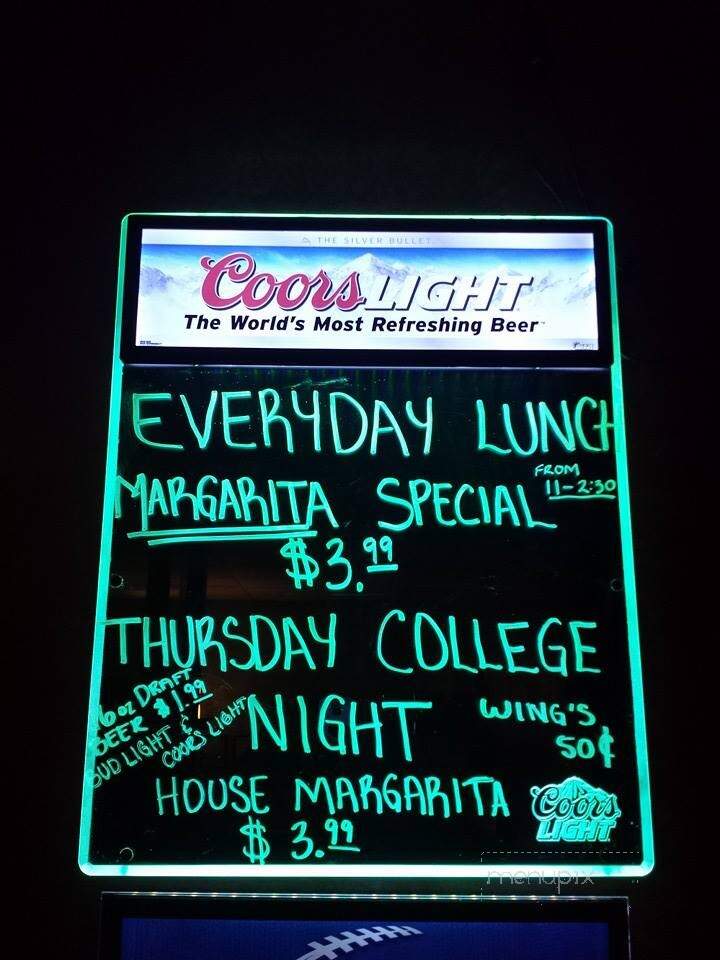 THE SILVER BULLET
Coors LIGHT
The World's Most Refreshing Beer
EVERYDAY LUNCH
MARGARITA SPECIAL FROM 11-2:30
$3.99
THURSDAY COLLEGE
NIGHT
16oz DRAFT
BEER $1.99
BUD LIGHT &
COORS LIGHT
WING'S
50¢
HOUSE MARGARITA
$3.99
Coors
LIGHT
menupix